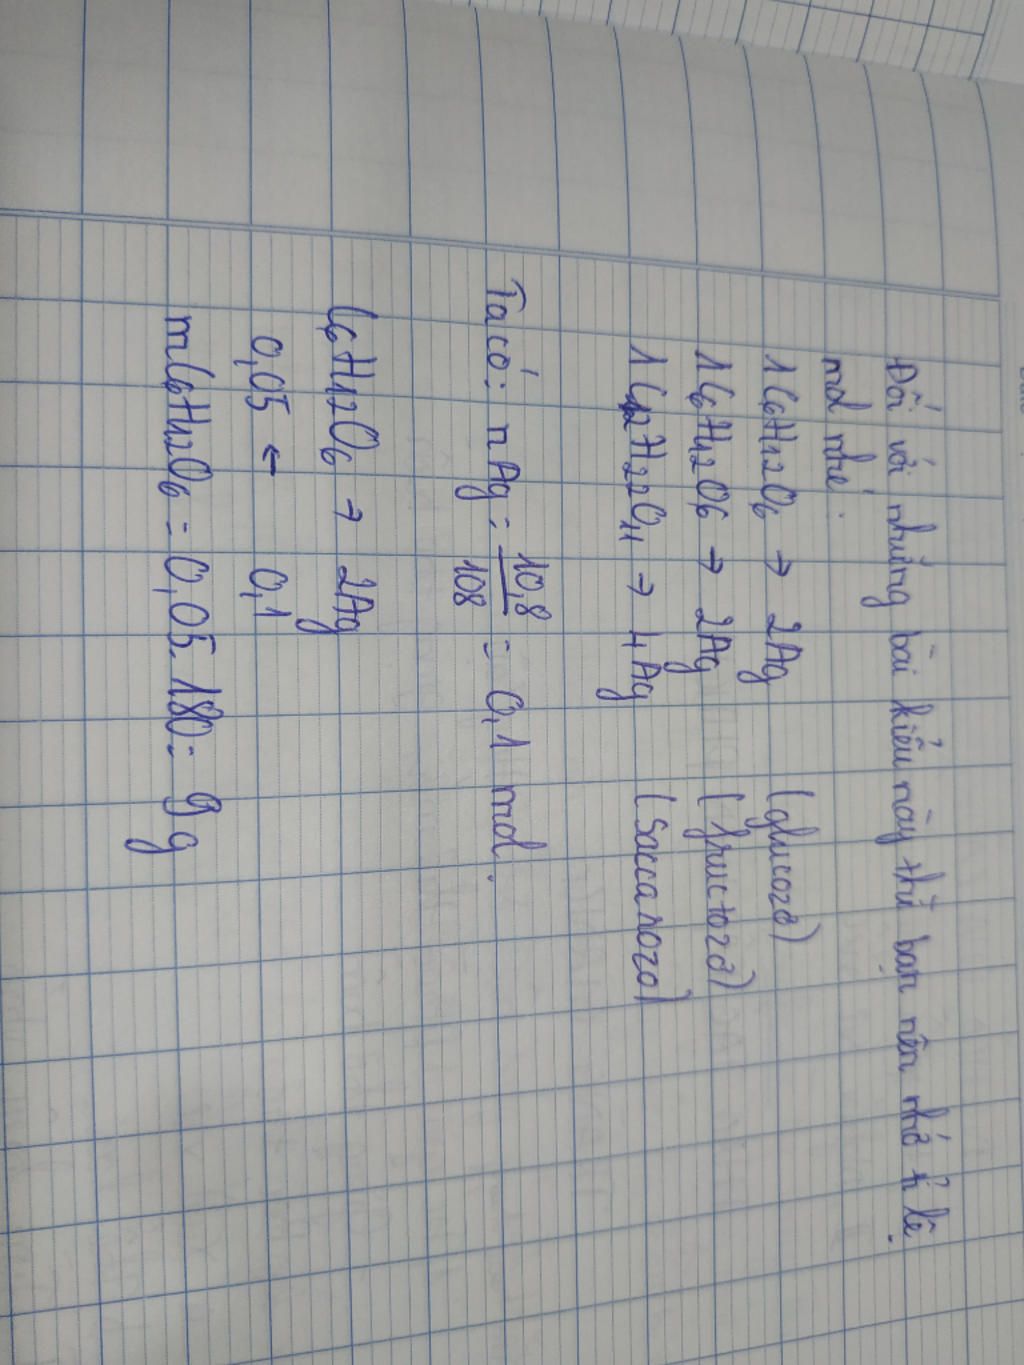 Đối với những bài kiểu này thì bạn nên nhớ tỉ lệ
mol nhé:
1 C6H12O6 → 2Ag (glucozơ)
1 C6H12O6 → 2Ag (fructozơ)
1 C12H22O11 → 4Ag (saccarozơ)
Ta có: nAg = 10,8/108 = 0,1 mol.
C6H12O6 → 2Ag
0,05 ← 0,1
mC6H12O6 = 0,05.180 = 9g